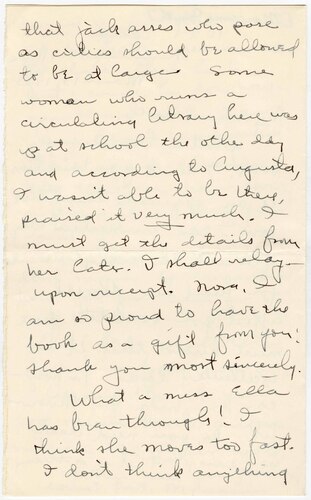 that jack asses who pose
as critics should be allowed
to be at large. Some
woman who runs a
circulating library here was
up at school the other day
and according to Augusta,
I wasn't able to be there,
praised it very much. I
must get the details from
her later. I shall relay
upon receipt. Nora, I
am so proud to have the
book as a gift from you.
Thank you most sincerely.
What a mess Ella
has been through! I
think she moves too fast.
I don't think anything